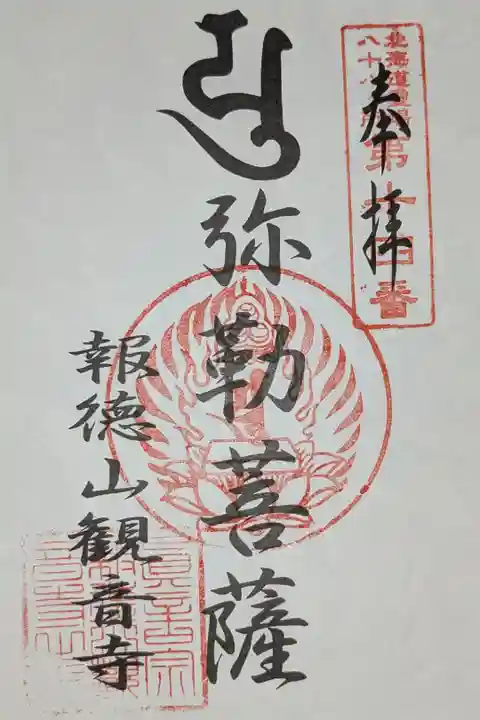 北海道
八十八
第十四番
奉拝
弥勒菩薩
報徳山観音寺